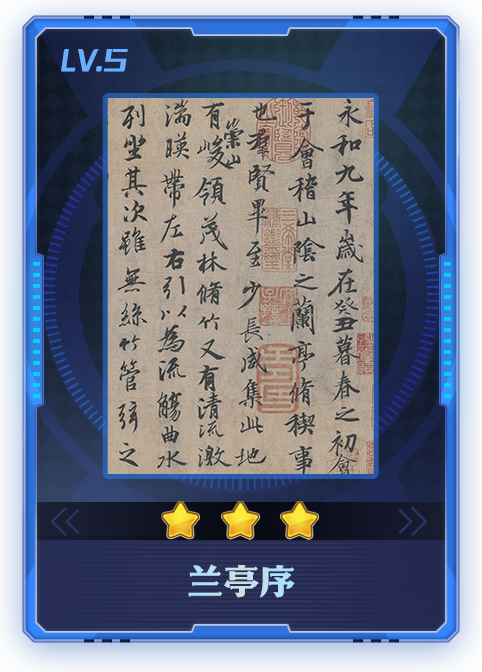 LV.5
永和九年歲在癸丑暮春之初會
于會稽山陰之蘭亭脩稧事
也羣賢畢至少長咸集此地
有崇山峻領茂林脩竹又有清流激
湍暎帶左右引以為流觴曲水
列坐其次雖無絲竹管弦之
兰亭序